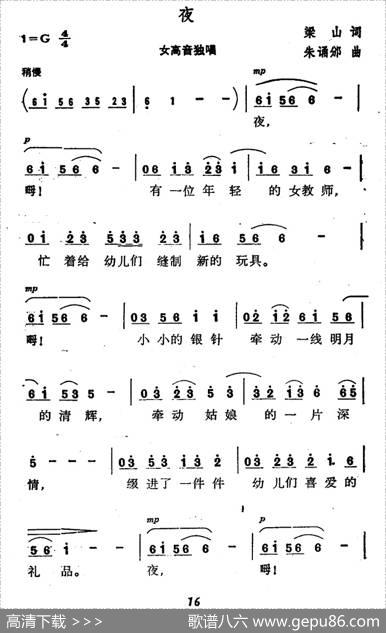 夜
1=G 4/4
女高音独唱
梁山 词
朱诵邠 曲
稍慢
mp
(6i 56 35 23 | 6 1 - -) | 6i 56 6 - |
夜,
p
6i 56 6 - | 06 i3 23 i | i6 3i 6 - |
啊! 有一位年轻 的女教师,
0i 23 533 23 | i6 56 6 - |
忙着给幼儿们缝制 新的玩具。
mp
6i 56 6 - | 03 56 i i | 02 12 6i 56 |
啊! 小小的银针 牵动一线明月
6i 53 5 - | 03 23 5 3 | 32 13 6 65 |
的清辉, 牵动姑娘 的一片深
5 - - - | 03 53 13 2 | 03 23 2 1.6 |
情, 缀进了一件件 幼儿们喜爱的
mp
p
56 i - - | 6i 56 6 - | 6i 56 6 - |
礼品。 夜, 啊!
16
高清下载 >>>
歌谱八六 www.gepu86.com